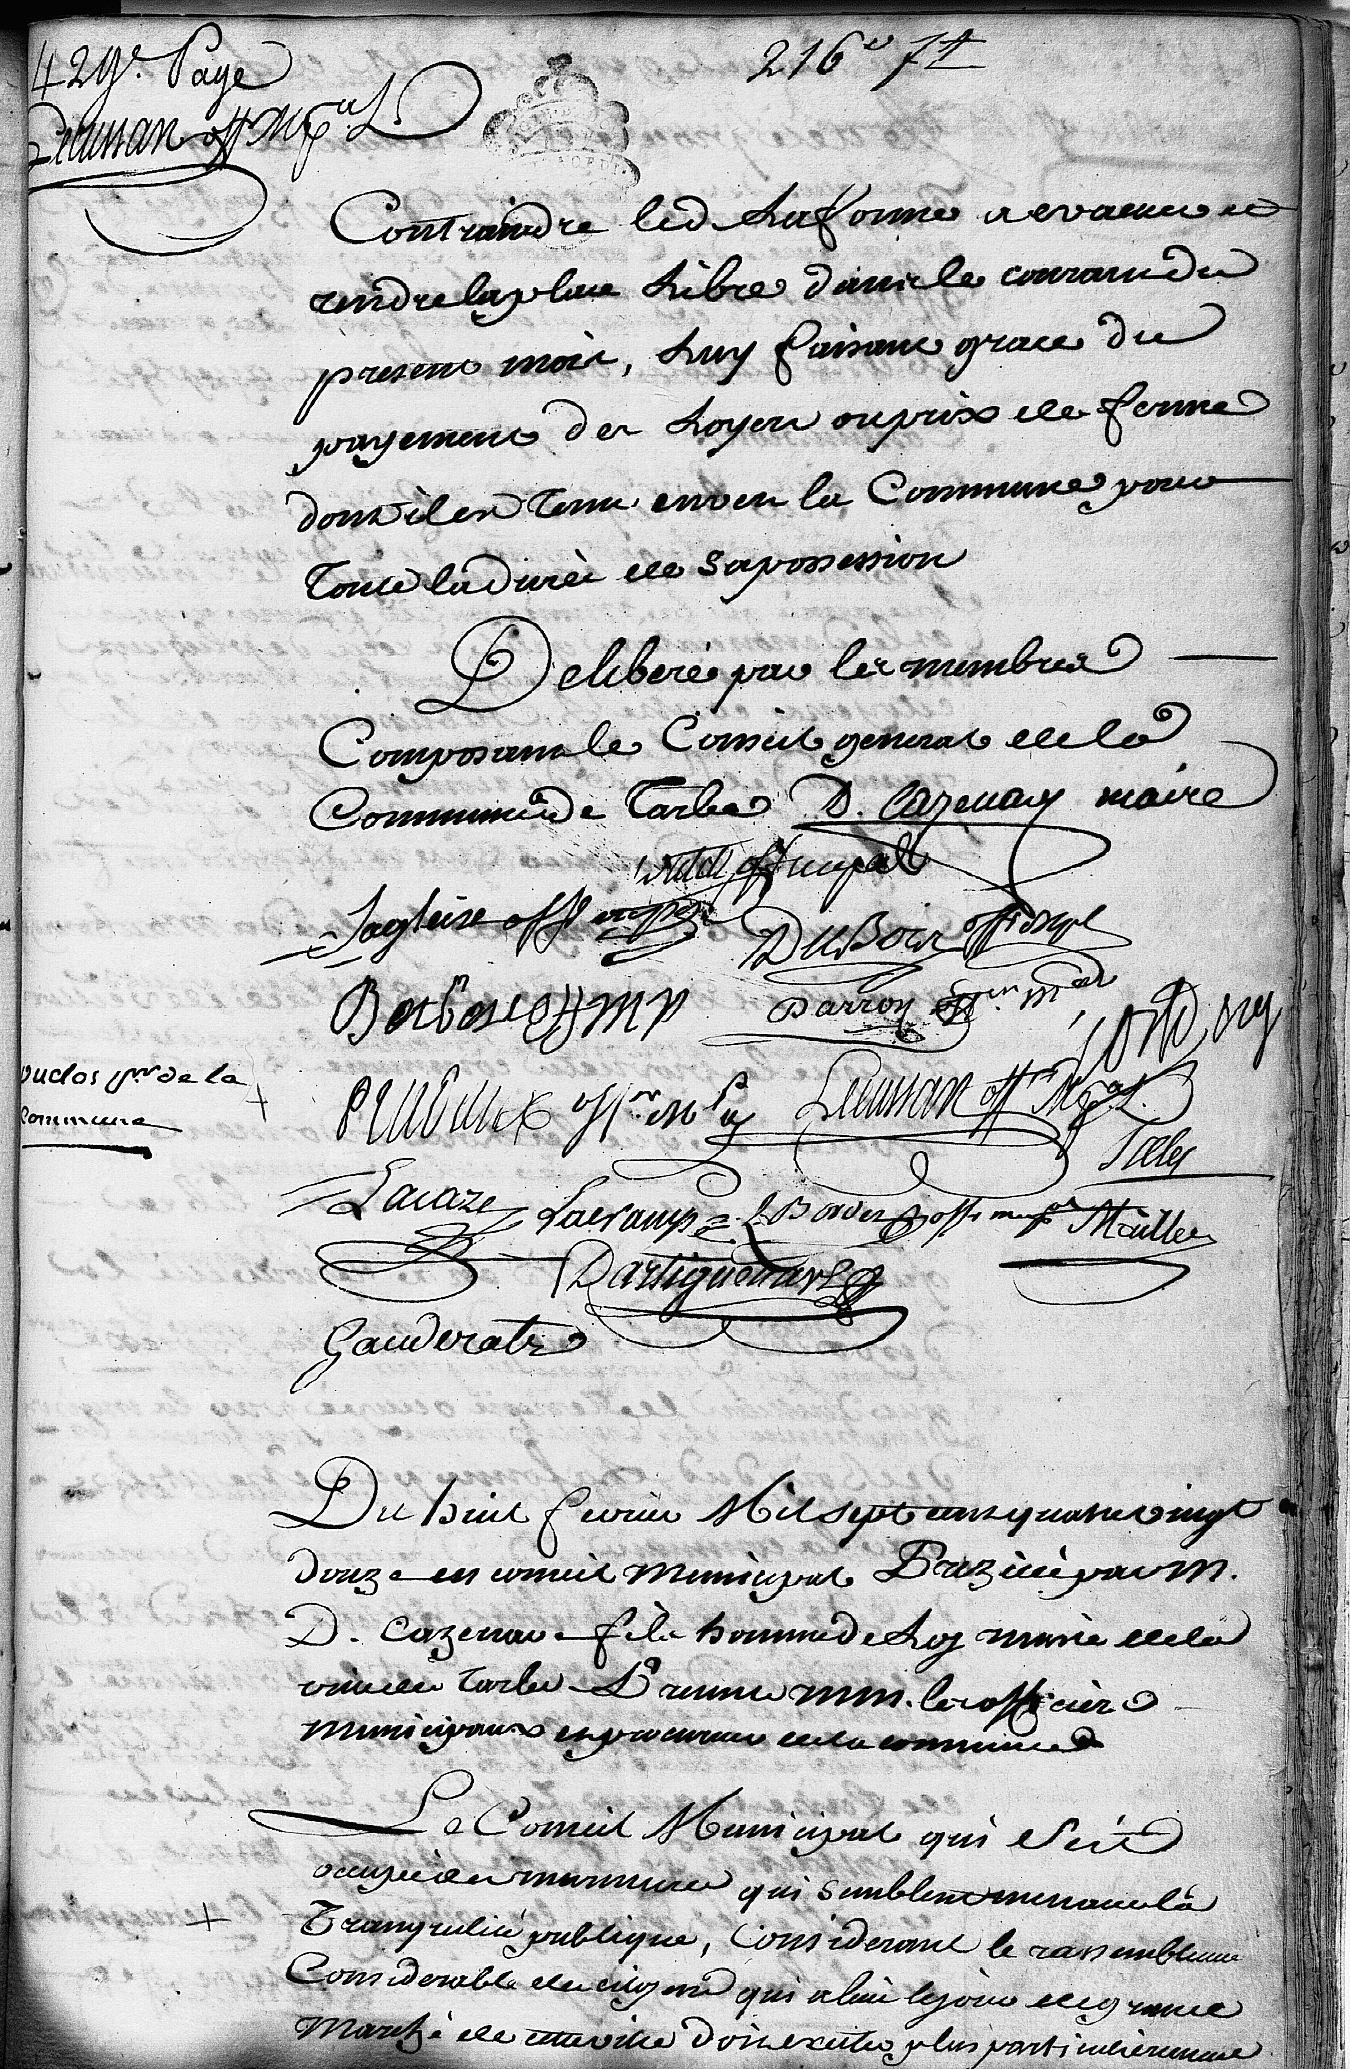 429e. Page
216e 7t
Lecussan off Mpal
Contraindre led Laforme a evacuer et
rendre la place Libre dans le courant du
present mois, Luy faisant grace du
payement des Loyers ou prix de ferme
dont il est tenu envers la Commune pour
toute la durée de sa possession
Deliberé par les membres
Composant le Conseil general de la
Commune de Tarbes D. Cazenave maire
off mupal
Lagleise off mpal
DuBois off mpl
Barbose off MP
Darroy offer mal
Duclos pr de la
commune
offer mpal
Lecussan offer Mpal
Lacaze Lacrampe off mupal Muller
Dartiguenave
Gauderatz
Du huit fevrier Mil sept cent quatre vingt
douze en conseil Municipal Prezidé par m.
D. Cazenave fils homme de Loy maire de la
ville de Tarbes Presens mm. les officiers
Municipaux et procureur de la commune
Le Conseil Municipal qui s'est
occupé des murmures qui semblent menacer la
Tranquilité publique, Considerant le rassemblement
Considerable de citoyens qui a lieu le jour de grand
Marché de cette ville doit exciter plus particulierement